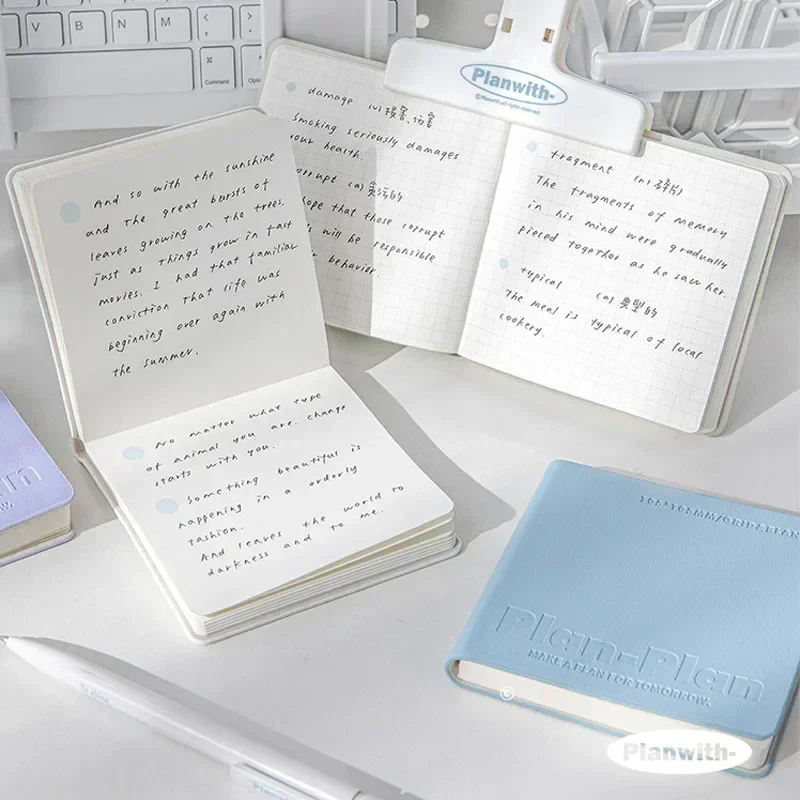 V
B
N
M
<
,
>
.
?
/
command
Planwith-
©Planwith.all rights reserved.
And so with the sunshine
and the great bursts of
leaves growing on the trees.
just as things grow in fast
movies. I had that familiar
conviction that life was
beginning over again with
the summer.
No matter what type
of animal you are. change
starts with you.
Something beautiful is
happening in a orderly
fashion.
And leaves the world to
darkness and to me.
damage (v) 损害、伤害
smoking seriously damages
your health.
corrupt (a)
hope that those corrupt
will be responsible
behavior.
fragment (n) 碎片
The fragments of memory
in his mind were gradually
pieced together as he saw her.
typical (a) 典型的
The meal is typical of local
cookery.
Plan-Plan
MAKE A PLAN FOR TOMORROW.
Planwith-